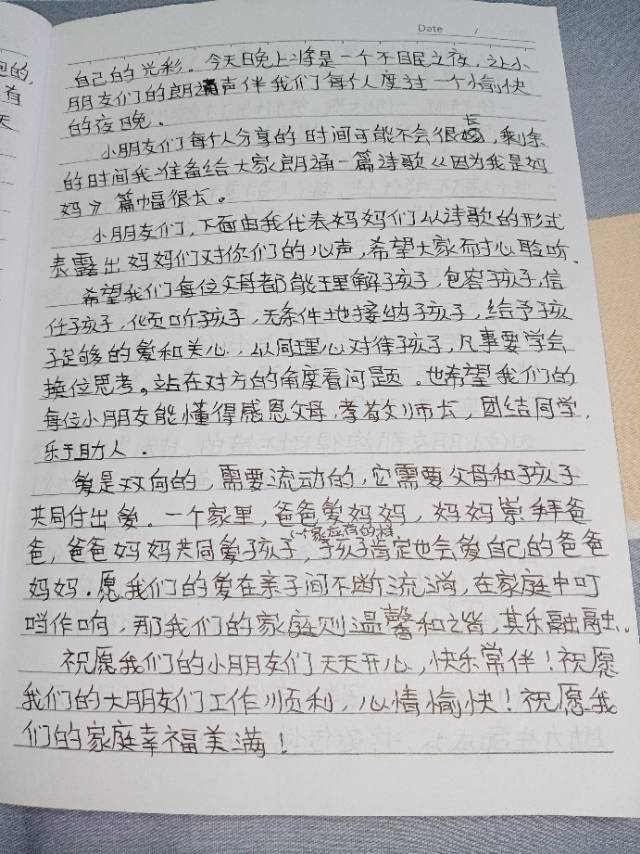 Date /
的,
有
天
自己的光彩。今天晚上将是一个不眠之夜,让小
朋友们的朗诵声伴我们每个人度过一个愉快
的夜晚。
小朋友们每个人分享的时间可能不会很长,剩余
的时间我准备给大家朗诵一篇诗歌《因为我是妈
妈》篇幅很长。
小朋友们,下面由我代表妈妈们以诗歌的形式
表露出妈妈们对你们的心声,希望大家耐心聆听。
希望我们每位父母都能理解孩子,包容孩子,信
任孩子,倾听孩子,无条件地接纳孩子,给予孩
子足够的爱和关心,以同理心对待孩子,凡事要学会
换位思考。站在对方的角度看问题。也希望我们的
每位小朋友能懂得感恩父母,孝敬师长,团结同学,
乐于助人。
爱是双向的,需要流动的,它需要父母和孩子
共同付出爱。一个家里,爸爸爱妈妈,妈妈崇拜爸
爸,爸爸妈妈共同爱孩子,孩子肯定也会爱自己的爸爸
妈妈。愿我们的爱在亲子间不断流淌,在家庭中叮
当作响,那我们的家庭则温馨和谐,其乐融融。
祝愿我们的小朋友们天天开心,快乐常伴!祝愿
我们的大朋友们工作顺利,心情愉快!祝愿我
们的家庭幸福美满!